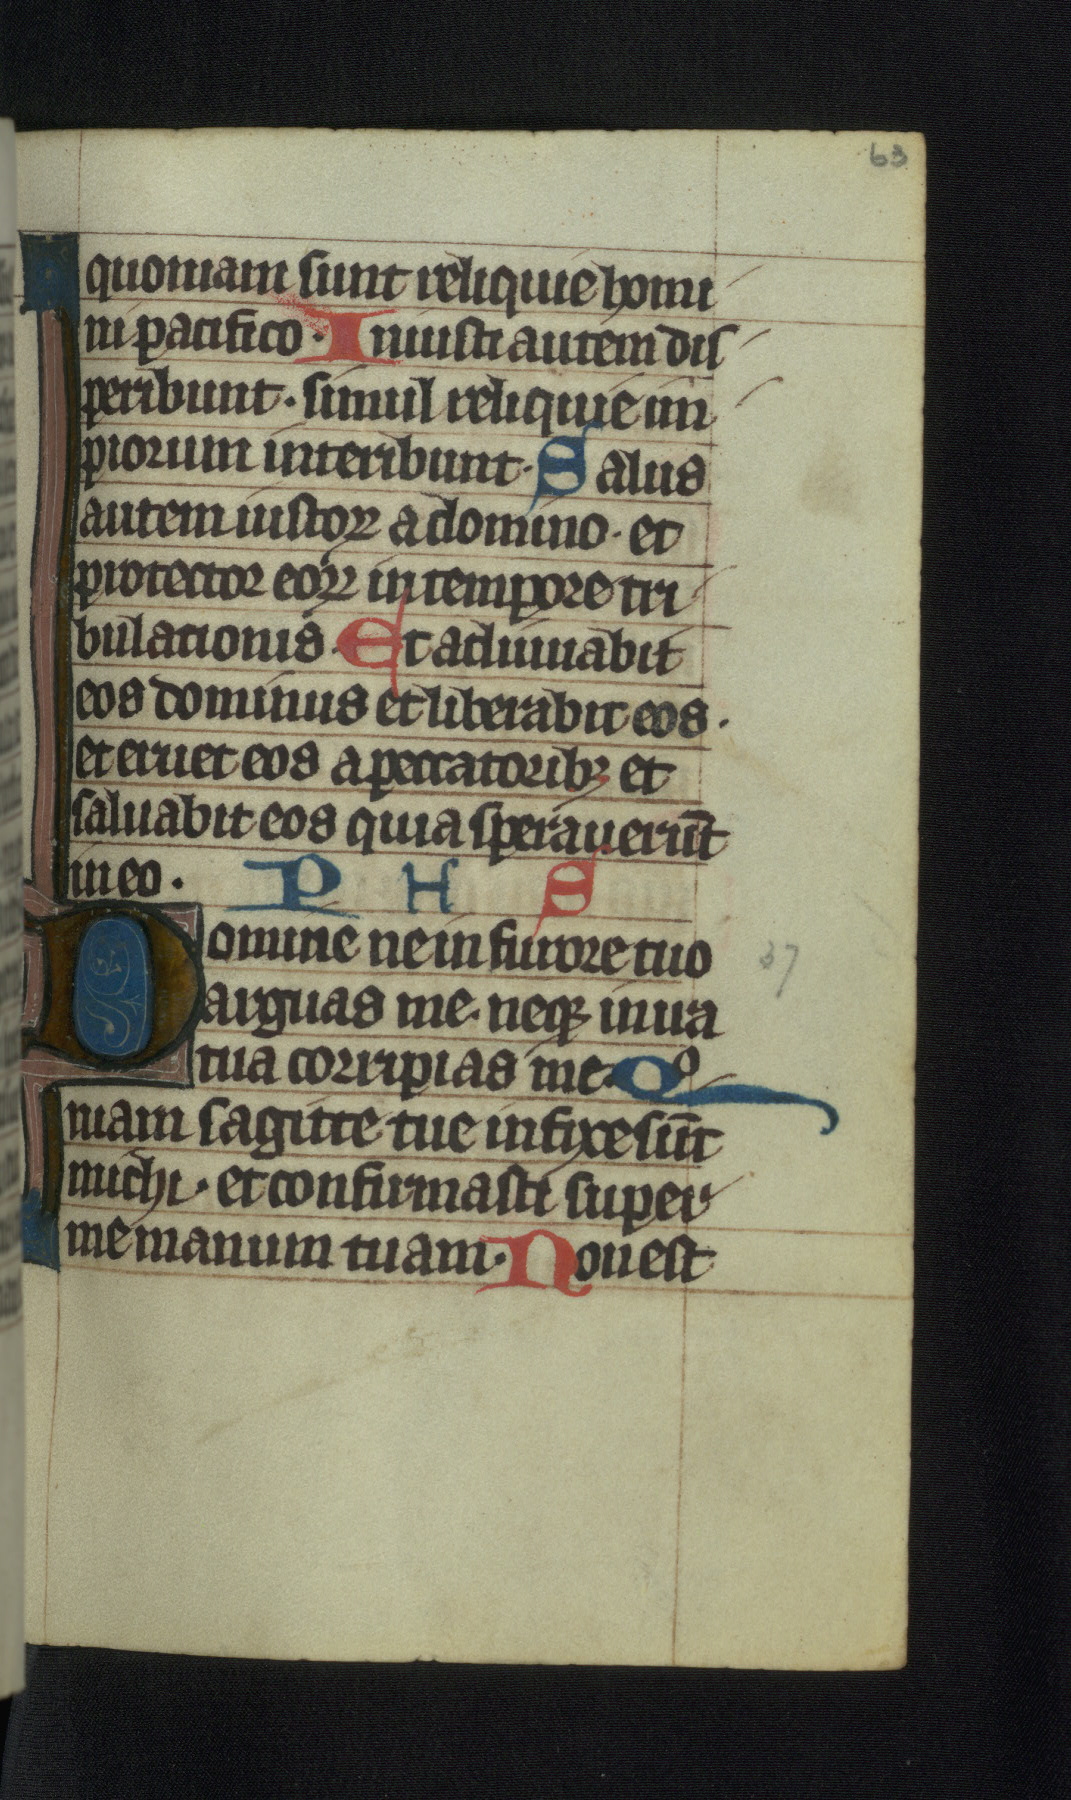 63
quoniam sunt reliquie homi
ni pacifico · Iniusti autem dis
peribunt · simul reliquie im
piorum interibunt · Salus
autem iustoꝝ a domino · et
protector eoꝝ in tempore tri
bulationis · Et adiuuabit
eos dominus et liberabit eos ·
et eruet eos a peccatoribꝫ et
saluabit eos quia sperauerūt
in eo · P H S
Domine ne in furore tuo
arguas me · neqꝫ in ira
tua corripias me · Qo
niam sagitte tue infixe sūt
michi · et confirmasti super
me manum tuam · Non est
37